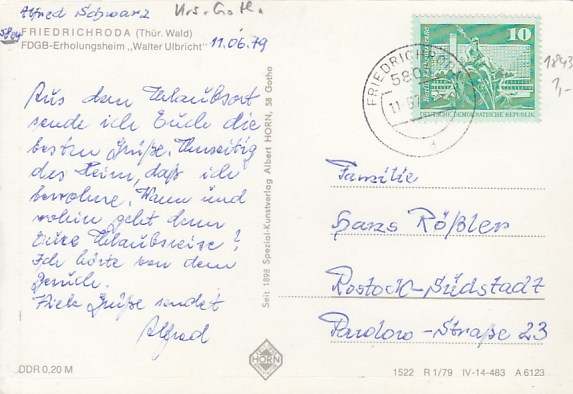 Alfred Schwarz Krs. Goth.
5804
FRIEDRICHRODA (Thür. Wald)
FDGB-Erholungsheim „Walter Ulbricht" 11.06.79
Aus dem Urlaubsort
sende ich Euch die
besten Grüße. Umseitig
das Heim, daß ich
bewohne. Wann und
wohin geht denn
Eure Urlaubsreise?
Ich hörte von dem
Gerücht.
Viele Grüße sendet
Alfred
DDR 0,20 M
Seit 1898 Spezial-Kunstverlag Albert HORN, 58 Gotha
HORN
FRIEDRICHRODA
580
10
DEUTSCHE DEMOKRATISCHE REPUBLIK
1843
1,-
Familie
Hans Rößler
Rostock-Südstadt
Pawlow-Straße 23
1522 R 1/79 IV-14-483 A 6123